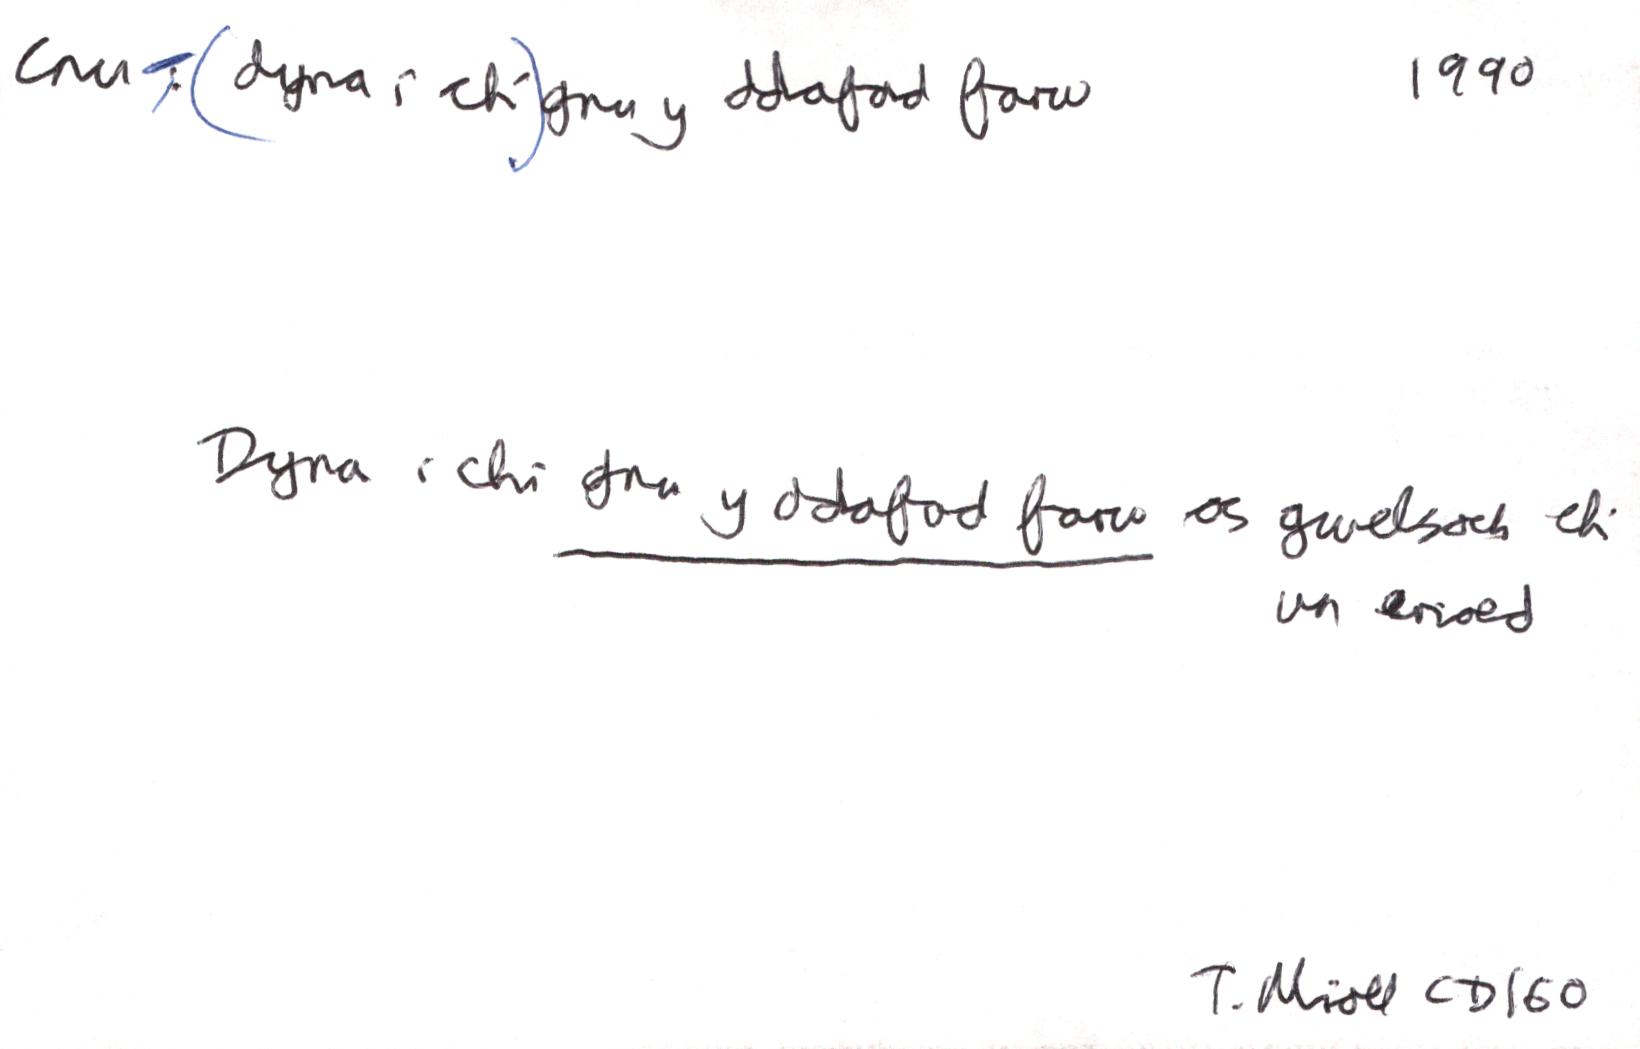 cnu : (dyna i chi) gnu y ddafad farw 1990
Dyna i chi gnu y ddafad farw os gwelsoch chi
un erioed
T. Miall CD160